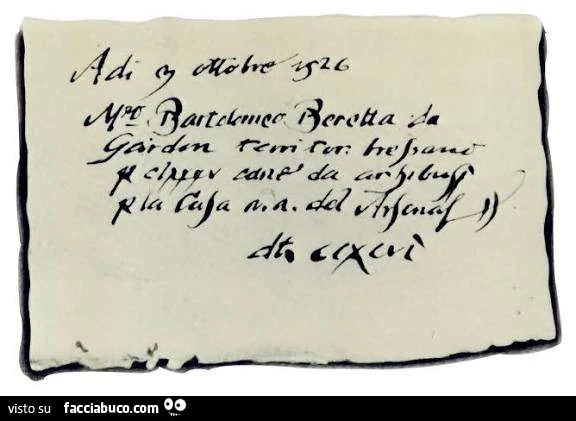 Adi 3 ottobre 1526
Mro. Bartolomeo Beretta da
Gardon territor: bressano
p clxxxv cane da archibusi
p la Casa n.a. del Arsenal
dti ccxcvi
visto su facciabuco.com